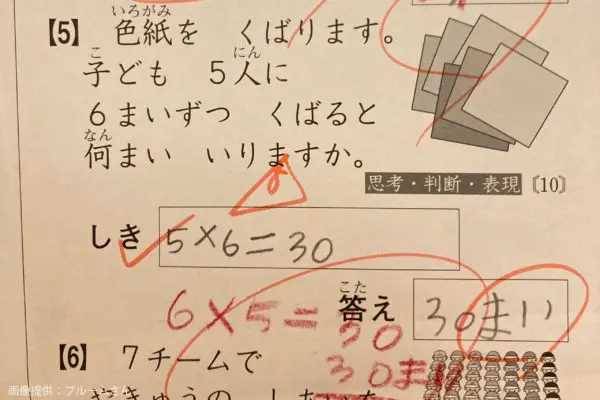 いろがみ
【5】 色紙を くばります。
こ にん
子ども 5人に
6まいずつ くばると
なん
何まい いりますか。
思考・判断・表現 〔10〕
しき 5×6=30
こた
答え 30まい
6×5=30
30まい
【6】 7チームで
画像提供：ブルー